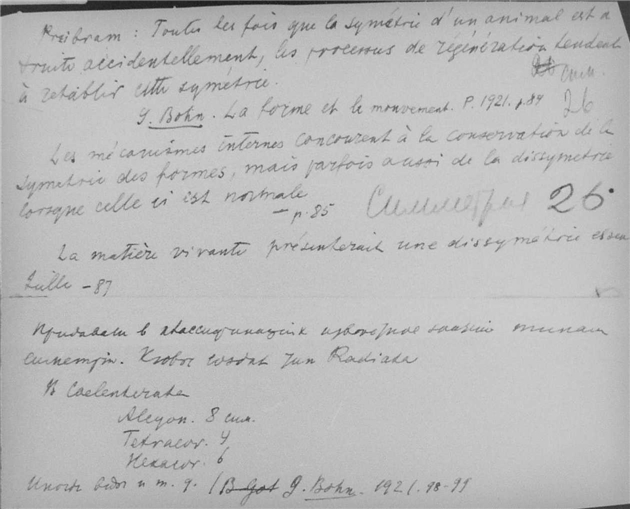 Prcibram : Toutes les fois que la symétrie d'un animal est d
truite accidentellement, les processus de régénération tendent
à rétablir cette symétrie.
сим.
G. Bohn. La forme et le mouvement. P. 1921. p. 84
26
Les mécanismes internes concourent à la conservation de la
symetrie des formes, mais parfois aussi de la dissymetrie
lorsque celle ci est normale
– p. 85
Симметрия 26
La matière vivante présenterait une dissymétrie essen
tielle – 87
Придавали в классификациях
симметрии. Radiata
В Coelenterata
Alcyon. 8 сим.
Tetracor. 4
Hexacor. 6
и т. д. (B Got G. Bohn. 1921. 98-99